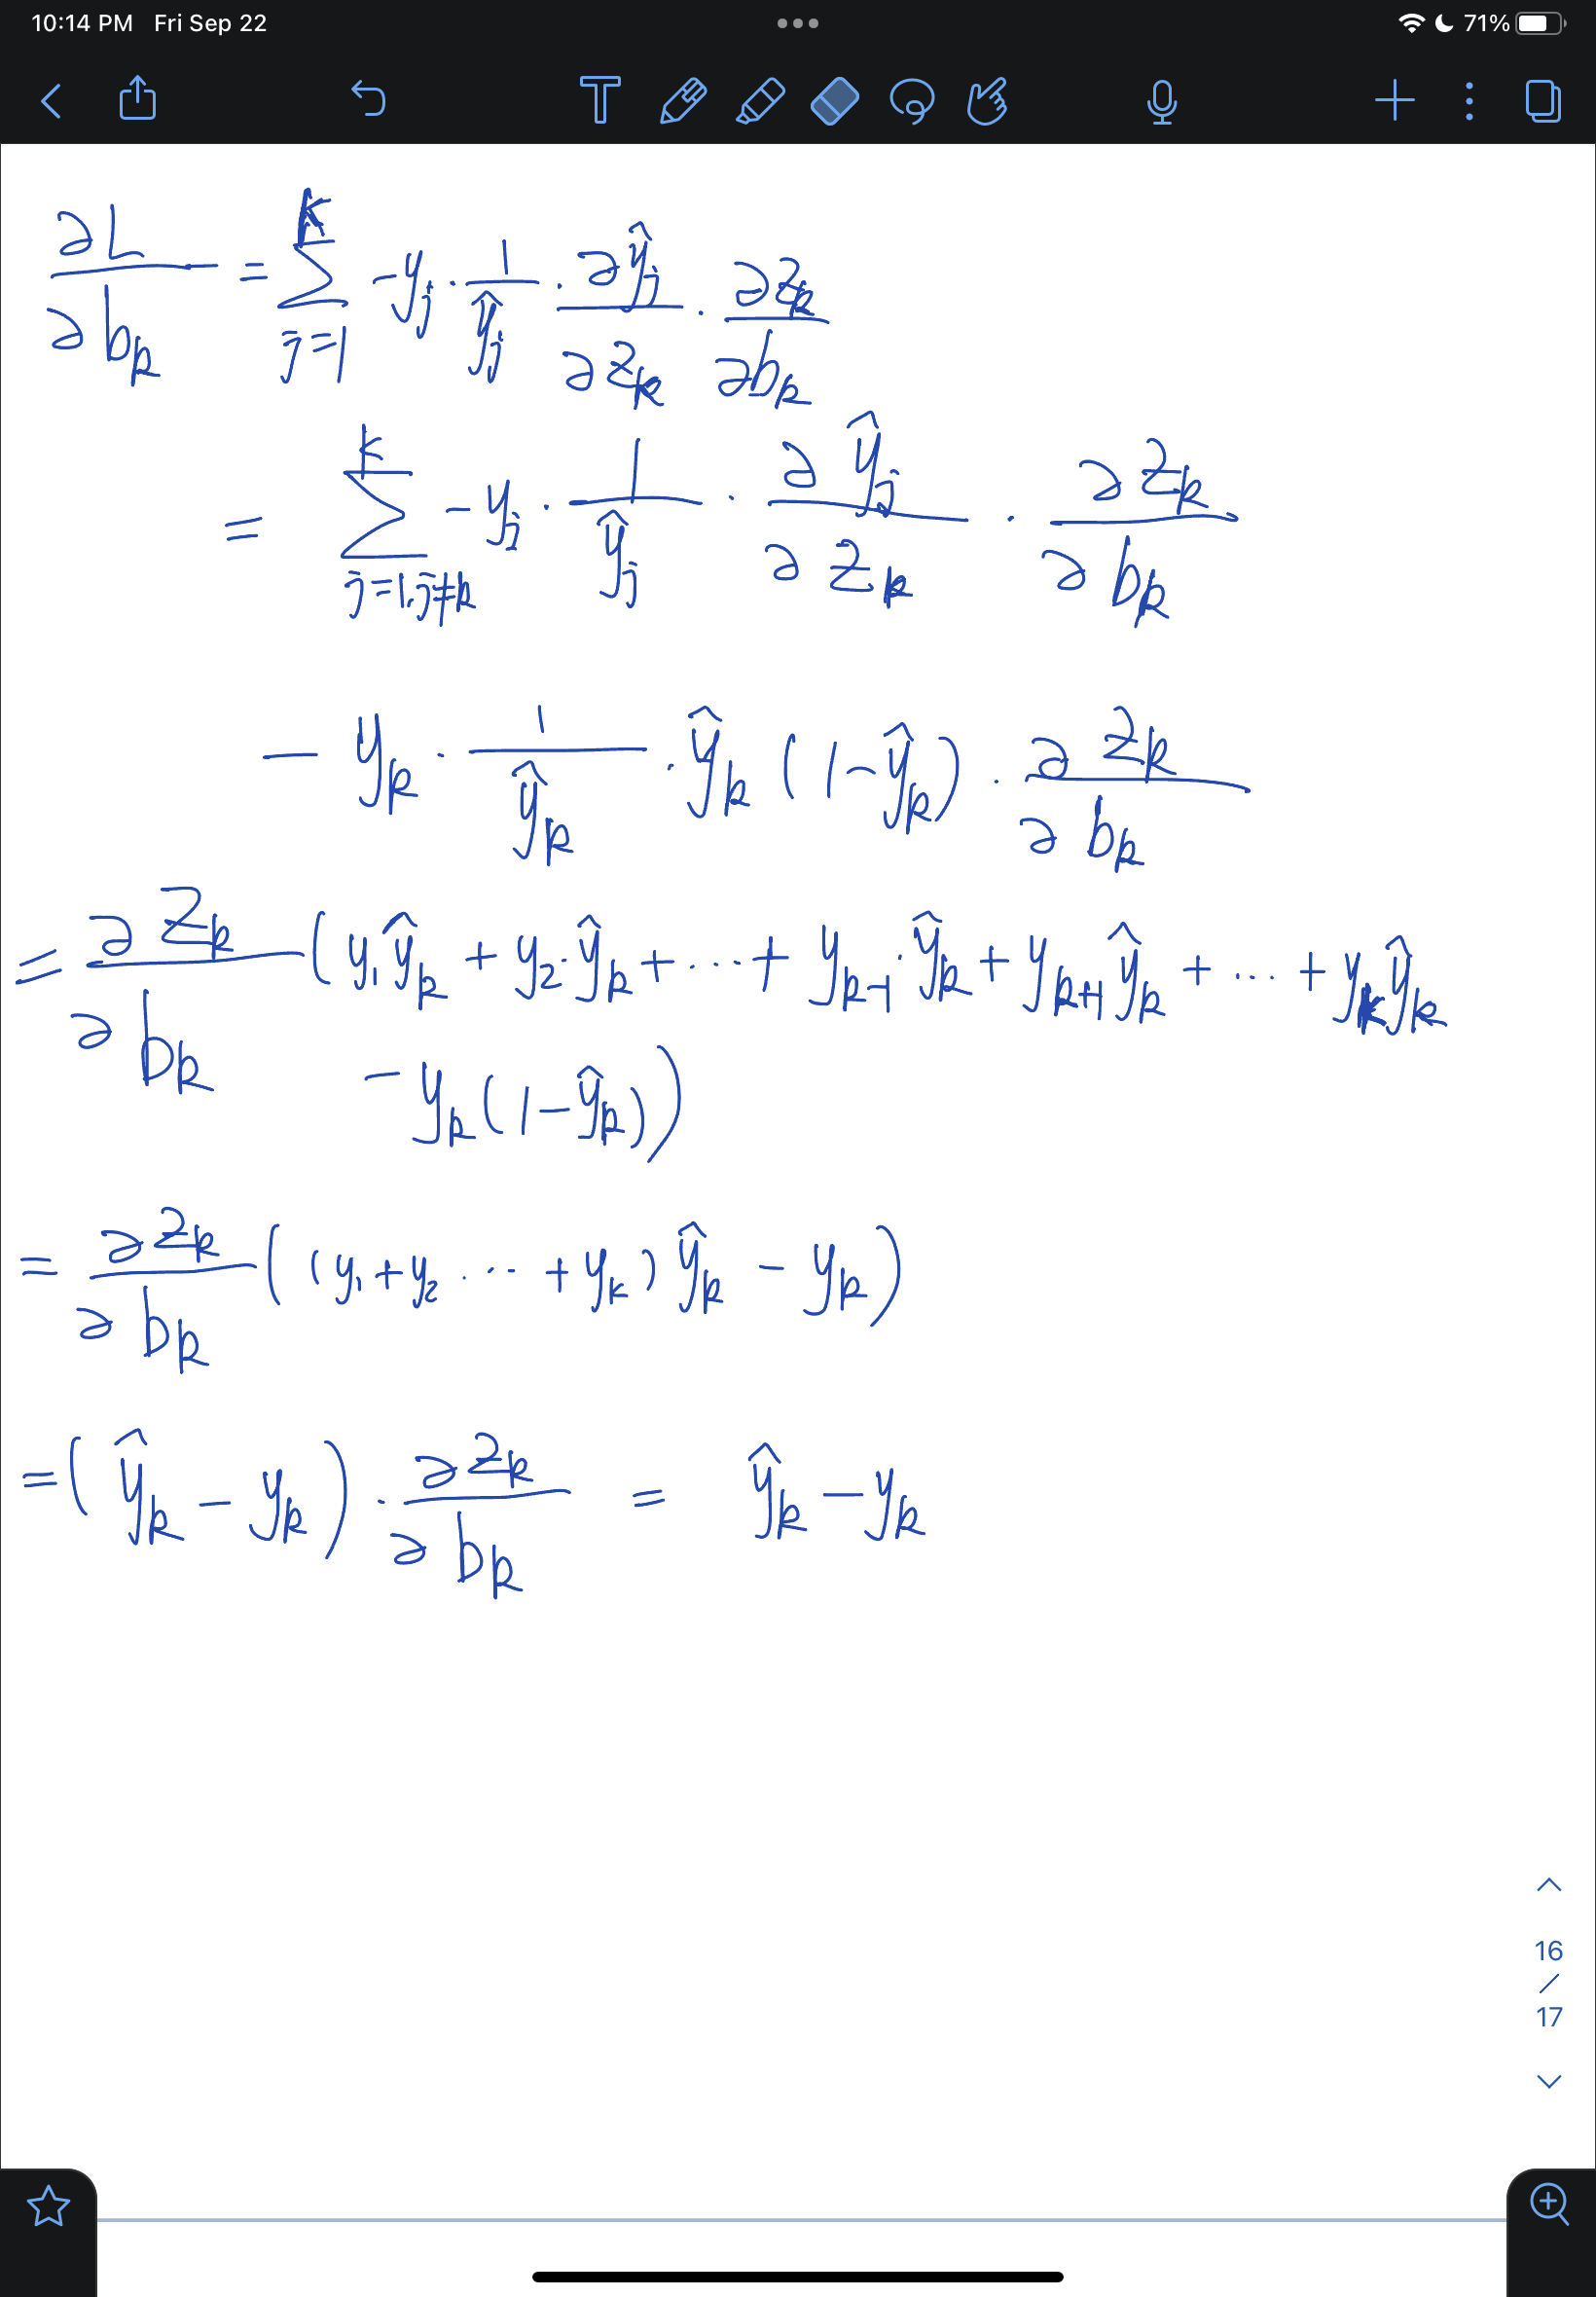 10:14 PM Fri Sep 22 71%
∂L/∂b_k = Σ_{j=1}^{K} -y_j · 1/ŷ_j · ∂ŷ_j/∂z_k · ∂z_k/∂b_k
= Σ_{j=1, j≠k}^{K} -y_j · 1/ŷ_j · ∂ŷ_j/∂z_k · ∂z_k/∂b_k
- y_k · 1/ŷ_k · ŷ_k (1-ŷ_k) · ∂z_k/∂b_k
= ∂z_k/∂b_k (y_1 ŷ_k + y_2 · ŷ_k + ... + y_{k-1} · ŷ_k + y_{k+1} ŷ_k + ... + y_K ŷ_k
- y_k (1-ŷ_k))
= ∂z_k/∂b_k ((y_1 + y_2 ... + y_K) ŷ_k - y_k)
= (ŷ_k - y_k) · ∂z_k/∂b_k = ŷ_k - y_k
16
/
17